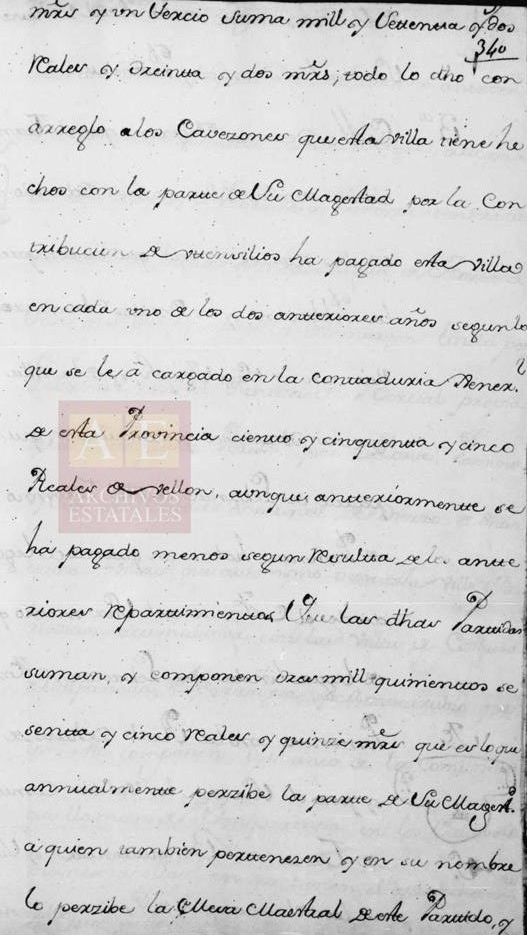 mrs y un tercio suma mill y settenta y dos
340
Reales y treinta y dos mrs; todo lo dho con
arreglo a los Cavezones que esta villa tiene he
chos con la parte de Su Magestad por la Con
tribucion de uttensilios ha pagado esta villa
en cada uno de los dos antteriores años segun lo
que se le â cargado en la conttaduria Gener.l
de esta Provincia ciento y cinquenta y cinco
Reales de vellon, aunque antteriormente se
ha pagado menos segun Resulta de los antte
riores Repartimientos Que las dhas Partidas
suman, y componen tres mill quinientos se
senta y cinco Reales y quinze mrs que es lo que
annualmente perzibe la parte de Su Magest.d
â quien tambien pertenezen y en su nombre
lo perzibe la Messa Maestral de este Partido, y
ARCHIVOS
ESTATALES